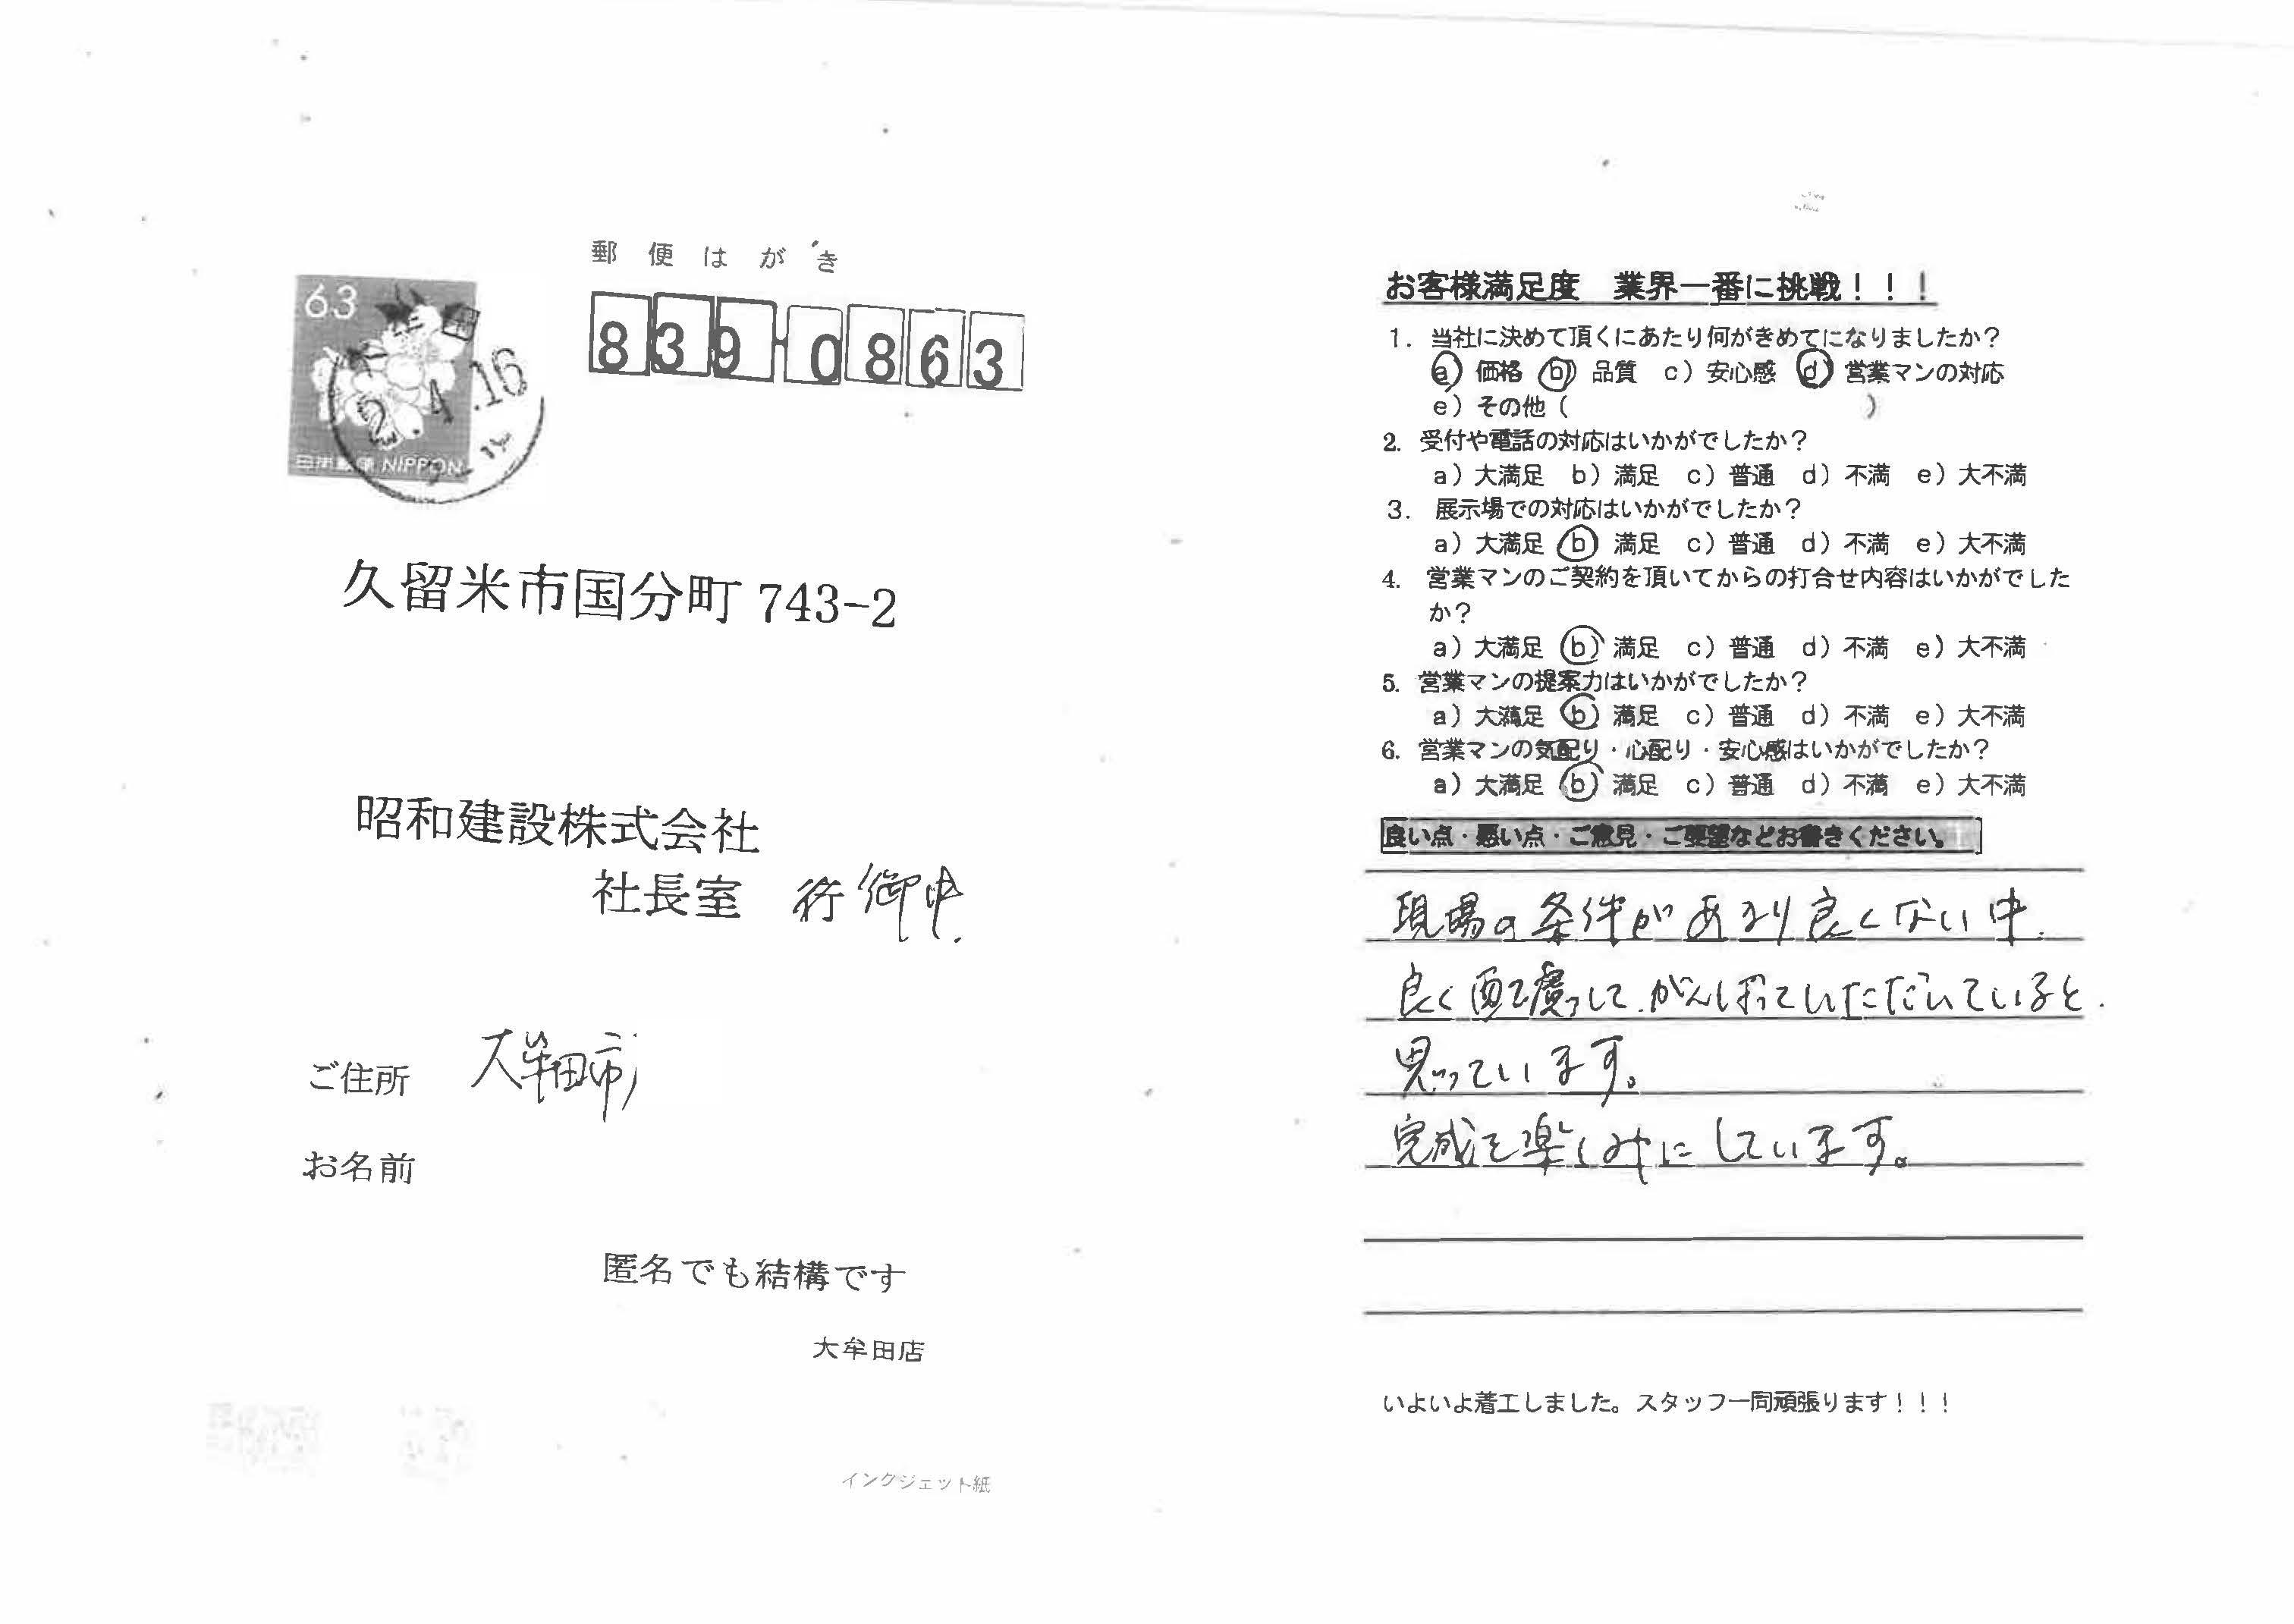 郵便はがき
63
日本郵便 NIPPON
2.4.16
839-0863
久留米市国分町 743-2
昭和建設株式会社
社長室 行 御中.
ご住所 大牟田市
お名前
匿名でも結構です
大牟田店
インクジェット紙
お客様満足度 業界一番に挑戦!!!
1. 当社に決めて頂くにあたり何がきめてになりましたか?
a) 価格 b) 品質 c) 安心感 d) 営業マンの対応
e) その他( )
2. 受付や電話の対応はいかがでしたか?
a) 大満足 b) 満足 c) 普通 d) 不満 e) 大不満
3. 展示場での対応はいかがでしたか?
a) 大満足 b) 満足 c) 普通 d) 不満 e) 大不満
4. 営業マンのご契約を頂いてからの打合せ内容はいかがでした
か?
a) 大満足 b) 満足 c) 普通 d) 不満 e) 大不満
5. 営業マンの提案力はいかがでしたか?
a) 大満足 b) 満足 c) 普通 d) 不満 e) 大不満
6. 営業マンの気配り・心配り・安心感はいかがでしたか?
a) 大満足 b) 満足 c) 普通 d) 不満 e) 大不満
良い点・悪い点・ご意見・ご要望などお書きください。
現場の条件があまり良くない中.
良く配慮して.がんばっていただいていると.
思っています。
完成を楽しみにしています。
いよいよ着工しました。スタッフ一同頑張ります!!!